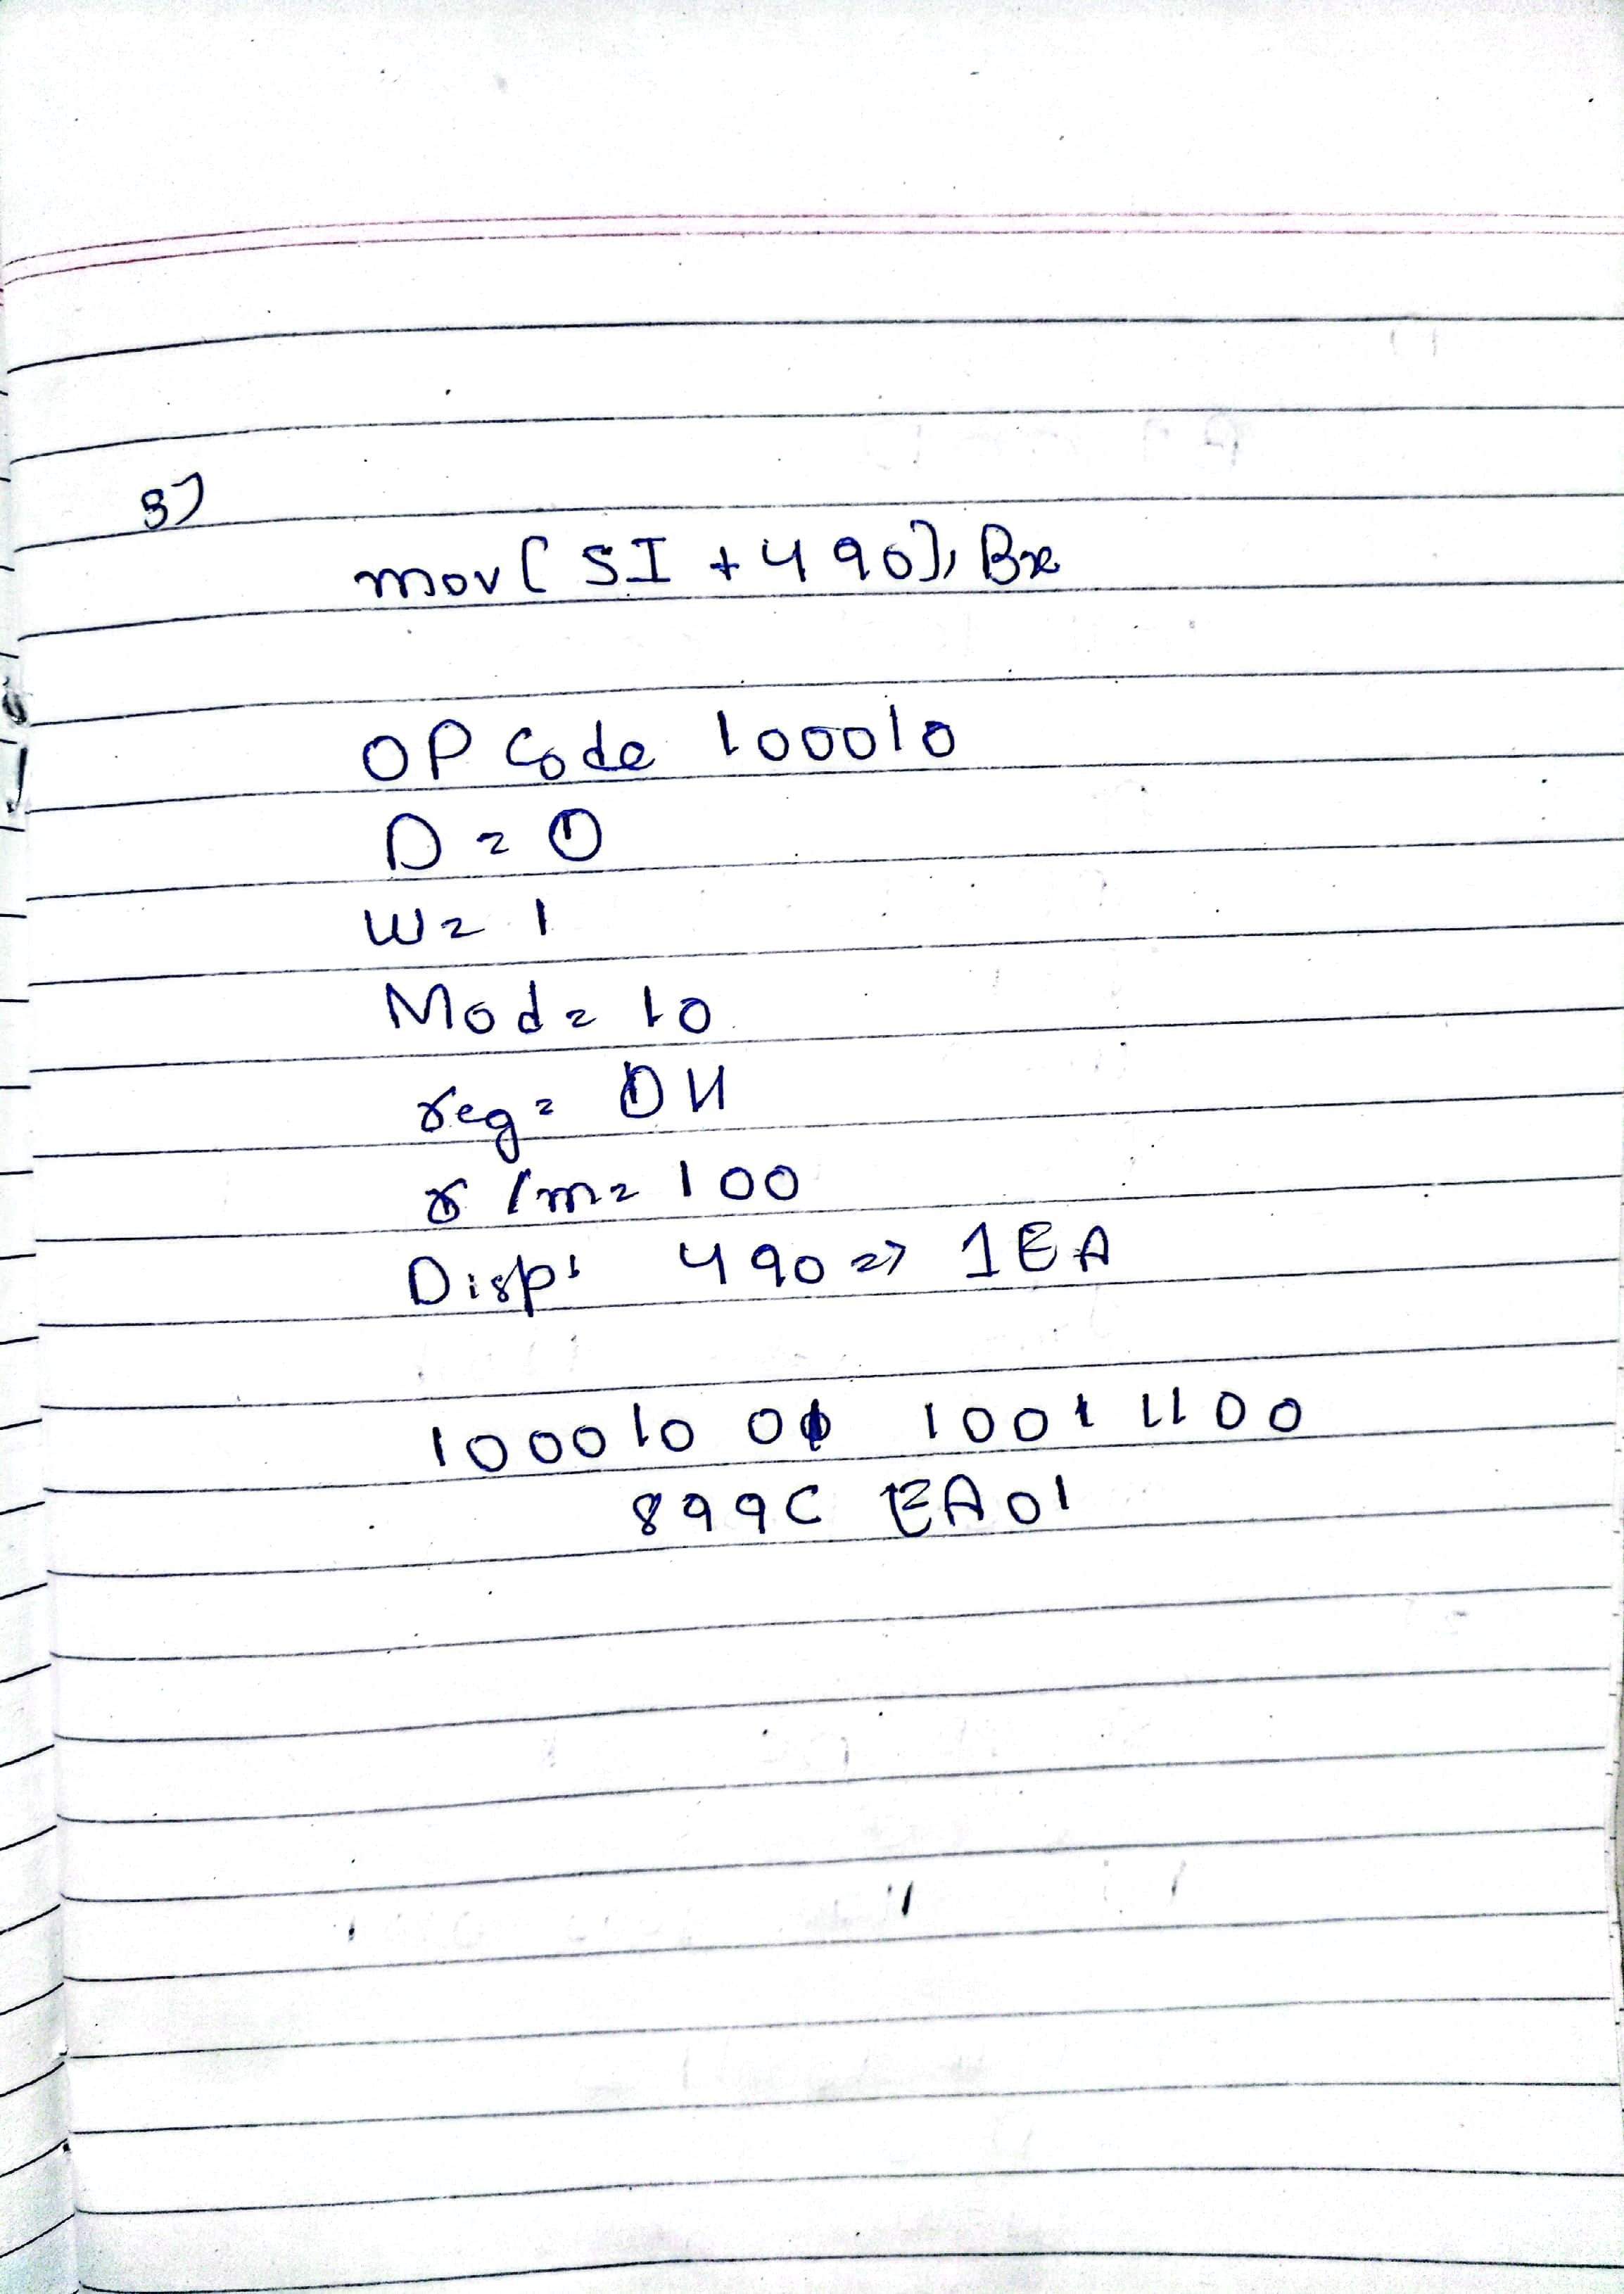 3)
mov [ SI + 490], Bx
OP Code 100010
D = 0
W = 1
Mod = 10
reg = 011
r/m = 100
Disp: 490 => 1EA
100010 01 1001 1100
899C EA01